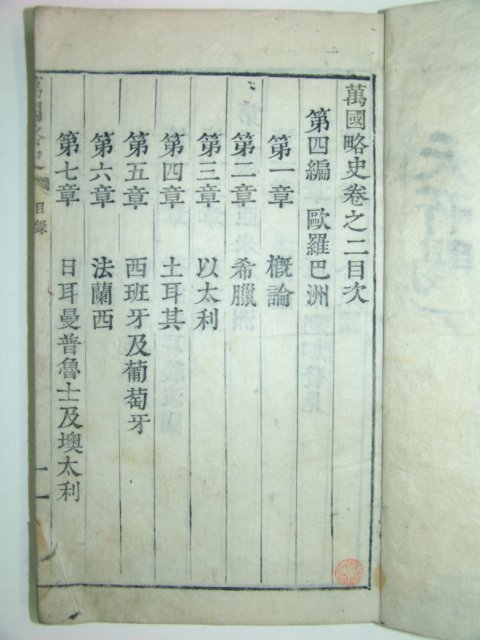 萬國略史卷之二目次
第四編 歐羅巴洲
第一章 槪論
第二章 希臘
第三章 以太利
第四章 土耳其
第五章 西班牙及葡萄牙
第六章 法蘭西
第七章 日耳曼普魯士及墺太利
萬國略史 目錄